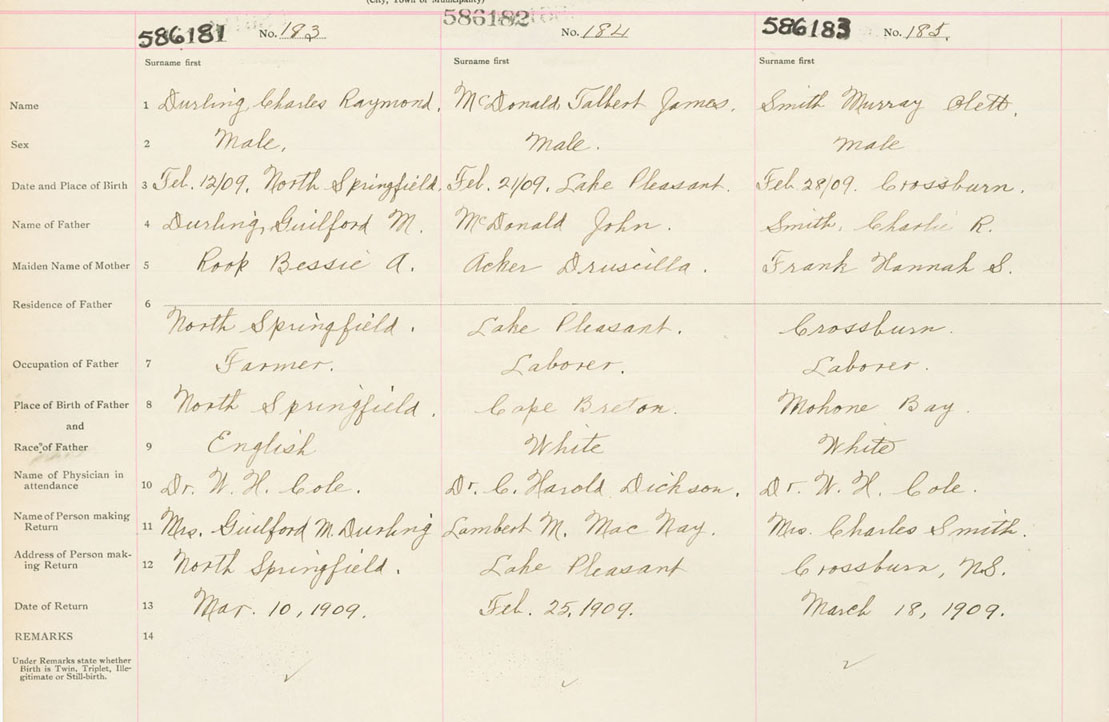 (City, Town or Municipality)
586181 No. 183 586182 No. 184 586183 No. 185.
Surname first Surname first Surname first
Name 1 Durling, Charles Raymond. McDonald Talbert James. Smith Murray
Sex 2 Male. Male. Male
Date and Place of Birth 3 Feb. 12/09. North Springfield. Feb. 21/09. Lake Pleasant. Feb. 28/09. Crossburn.
Name of Father 4 Durling, Guilford M. McDonald John. Smith, Charlie R.
Maiden Name of Mother 5 Roop Bessie A. Acker Druscilla. Frank Hannah S.
Residence of Father 6
North Springfield. Lake Pleasant. Crossburn.
Occupation of Father 7 Farmer. Laborer. Laborer.
Place of Birth of Father 8 North Springfield. Cape Breton. Mohone Bay.
and
Race of Father 9 English White White
Name of Physician in
attendance 10 Dr. W. H. Cole. Dr. C. Harold Dickson. Dr. W. H. Cole.
Name of Person making
Return 11 Mrs. Guilford M. Durling Lambert M. Mac Nay. Mrs. Charles Smith.
Address of Person mak-
ing Return 12 North Springfield. Lake Pleasant Crossburn, N.S.
Date of Return 13 Mar. 10, 1909. Feb. 25, 1909. March 18, 1909.
REMARKS 14
Under Remarks state whether
Birth is Twin, Triplet, Ille-
gitimate or Still-birth.